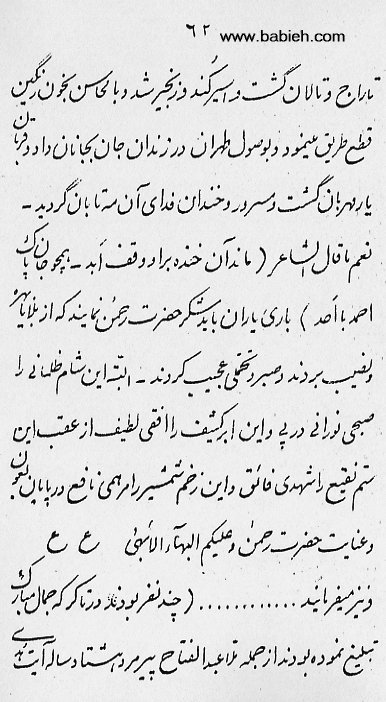 ٦٢
www.babieh.com
تاراج و تالان گشت و اسیر کُند و زنجیر شد و با محاسن بخون رنگین
قطع طریق مینمود و بوصول طهران در زندان جان بجانان داد و قربان
یار مهربان گشت و مسرور و خندان فدای آن مه تابان گردید ـ
نعم ما قال الشاعر ( ماند آن خنده بر او وقف ابد ـ همچو جان پاک
احمد با احد ) باری یاران باید شکر حضرت رحمن نمایند که از بلایا بهره
و نصیب بردند و صبر و تحمّلی عجیب کردند ـ البتّه این شام ظلمانی را
صبحی نورانی در پی و این ابر کثیف را افقی لطیف از عقب این
ستم نقیع را شهدی فائق و این زخم شمشیر را مرهمی نافع در پایان بعون
و عنایت حضرت رحمن و علیکم البهآء الأبهی ع ع
و نیز میفرمایند ............ ( چند نفر بودند در تاکر که جمال مبارک
تبلیغ نموده بودند از جمله ملا عبد الفتاح پیر مرد هشتاد ساله آیت هدی